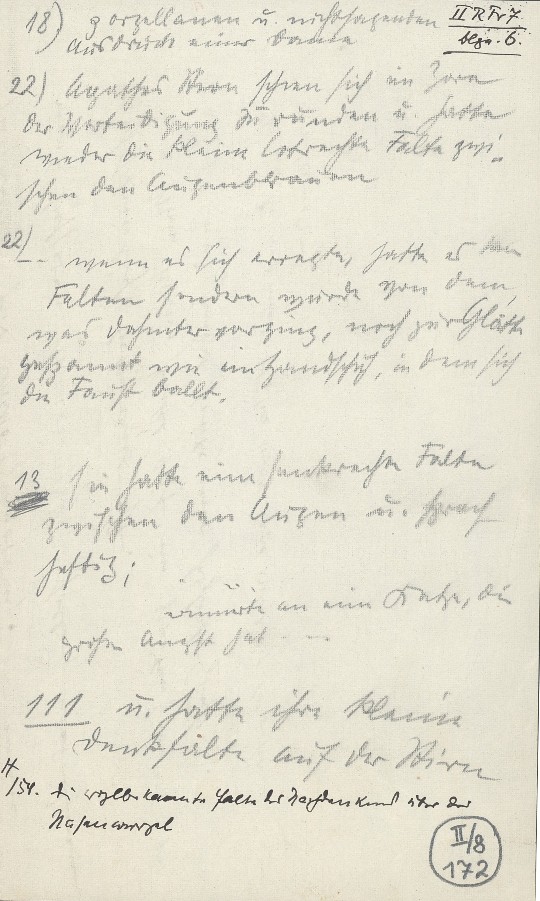 18) porzellanen u. nichtssagenden
Ausdruck einer Dame
II R Fr 7
blgn. 6.
22) Agathes Stirn schien sich im Zorn
der Verteidigung zu runden u. hatte
wieder die kleine lotrechte Falte zwi-
schen den Augenbrauen
22/ wenn es sich erregte, hatte es
Falten sondern wurde von dem,
was dahinter vorging, noch zur Glätte
gespannt wie ein Handschuh, in dem sich
die Faust ballt.
13 sie hatte eine senkrechte Falte
zwischen den Augen u. sprach
heftig;
erinnerte an eine Katze, die
große Angst hat - --
111 u. hatte ihre kleine
Denkfalte auf der Stirn
H
/54. die wohlbekannte Falte des Nachdenkens über der
Nasenwurzel
II/8
172